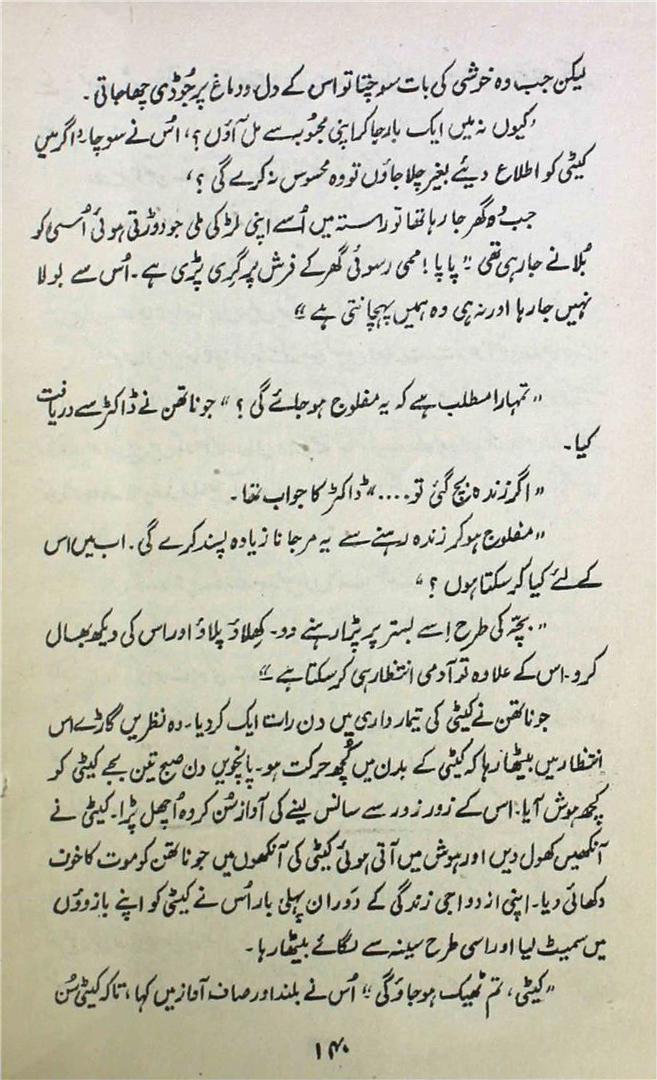 لیکن جب وہ خوشی کی بات سوچتا تو اس کے دل و دماغ پر جُوڈی چھا جاتی۔
’کیوں نہ میں ایک بار جا کر اپنی محبُوبہ سے مل آؤں؟‘، اُس نے سوچا، ’اگر میں
کیٹی کو اطلاع دیئے بغیر چلا جاؤں تو وہ محسوس نہ کرے گی؟‘،
جب وُہ گھر جا رہا تھا تو راستہ میں اُسے اپنی لڑکی ملی جو دوڑتی ہوئی اُسی کو
بُلانے جا رہی تھی ”پاپا! ممی رسوئی گھر کے فرش پر گِری پڑی ہے۔ اُس سے بولا
نہیں جا رہا اور نہ ہی وہ ہمیں پہچانتی ہے“
”تمہارا مطلب ہے کہ یہ مفلوج ہو جائے گی؟“ جوناتھن نے ڈاکٹر سے دریافت
کیا۔
”اگر زندہ بچ گئی تو....“ ڈاکٹر کا جواب تھا۔
”مفلوج ہو کر زندہ رہنے سے یہ مر جانا زیادہ پسند کرے گی۔ اب میں اس
کے لئے کیا کر سکتا ہوں؟“
”بچّہ کی طرح اِسے بستر پر پڑا رہنے دو۔ کھِلاؤ پلاؤ اور اس کی دیکھ بھال
کرو۔ اس کے علاوہ تو آدمی انتظار ہی کر سکتا ہے“
جوناتھن نے کیٹی کی تیمارداری میں دن رات ایک کر دیا۔ وہ نظریں گاڑے اس
انتظار میں بیٹھا رہا کہ کیٹی کے بدن میں کُچھ حرکت ہو۔ پانچویں دن صبح تین بجے کیٹی کو
کچھ ہوش آیا۔ اس کے زور زور سے سانس لینے کی آواز سُن کر وہ اُچھل پڑا۔ کیٹی نے
آنکھیں کھول دیں اور ہوش میں آتی ہوئی کیٹی کی آنکھوں میں جوناتھن کو موت کا خوف
دکھائی دیا۔ اپنی ازدواجی زندگی کے دَوران پہلی بار اُس نے کیٹی کو اپنے بازوؤں
میں سمیٹ لیا اور اسی طرح سینہ سے لگائے بیٹھا رہا۔
”کیٹی، تم ٹھیک ہو جاؤ گی“ اُس نے بلند اور صاف آواز میں کہا، تاکہ کیٹی سُن
۱۴۰